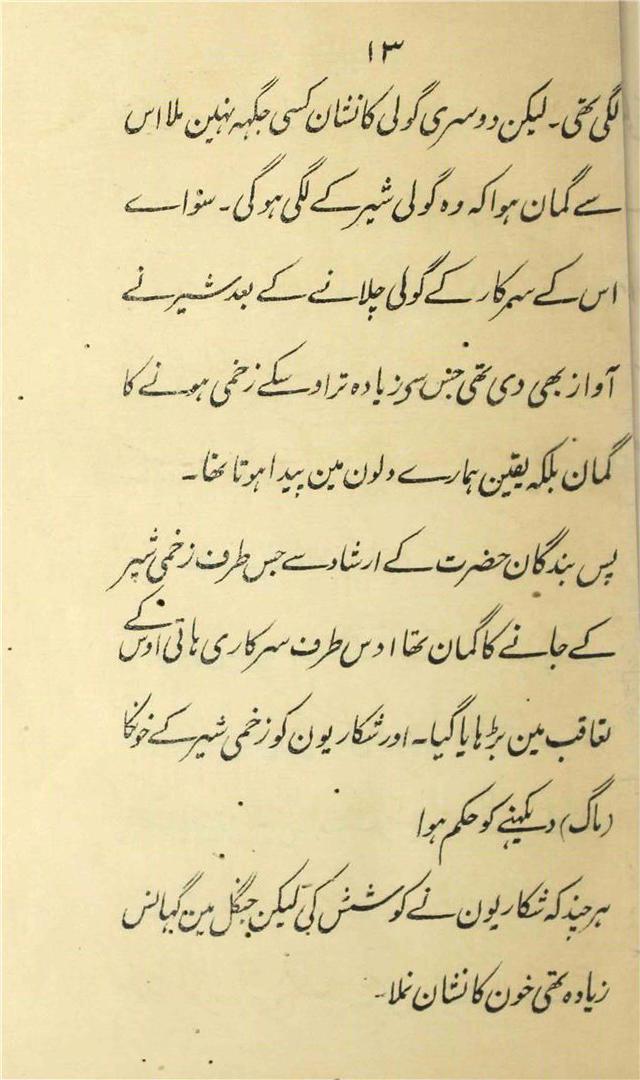 ۱۳
لگی تھی۔ لیکن دوسری گولی کا نشان کسی جگہہ نہین ملا اس
سے گمان ہوا کہ وہ گولی شیر کے لگی ہوگی۔ سواے
اس کے سرکار کے گولی چلانے کے بعد شیر نے
آواز بھی دی تھی جس سی زیادہ تر اوسکے زخمی ہونے کا
گمان بلکہ یقین ہمارے دلون مین پیدا ہوتا تھا۔
پس بندگان حضرت کے ارشاد سے جس طرف زخمی شیر
کے جانے کا گمان تھا اوس طرف سرکاری ہاتی اوس کے
تعاقب مین بڑہایا گیا۔ اور شکاریون کو زخمی شیر کے خونکا
(ماگ) دیکہنے کو حکم ہوا
ہر چند کہ شکاریون نے کوشش کی لیکن جنگل مین گہانس
زیادہ تھی خون کا نشان نملا۔